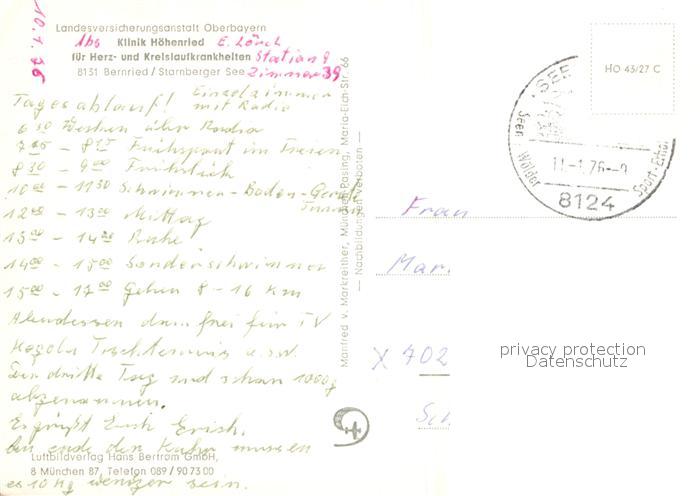 10.1.76
Landesversicherungsanstalt Oberbayern
Abs Klinik Höhenried E. Lörch
für Herz- und Kreislaufkrankheiten Station 9
8131 Bernried / Starnberger See Zimmer 39
Tagesablauf! Einzelzimmer
mit Radio
6 30 Wecken über Radio
7 45 - 8 15 Frühsport im Freien
8 30 - 9 00 Frühstück
10 00 - 11 30 Schwimmen - Boden - Gerät
Turnen
12 00 - 13 00 Mittag
13 00 - 14 00 Ruhe!
14 00 - 15 00 Sonderschwimmen
15 00 - 17 00 Gehen 8 - 16 km
Abendessen dann frei für TV
Kegeln Tischtennis u.s.w.
Der dritte Tag und schon 1000g
abgenommen.
Es grüßt Euch Erich.
Am ende der Kuhr müssen
Luftbildverlag Hans Bertram GmbH,
8 München 87, Telefon 089 / 90 73 00
es 10 kg weniger sein.
Manfred v. Markreither, München-Pasing, Maria-Eich-Str. 66
— Nachbildungen verboten —
HO 43/27 C
SEE
Seen Wälder
11.-1.76-9
Sport
8124
Frau
Mar.
X 702
Sch.
privacy protection
Datenschutz